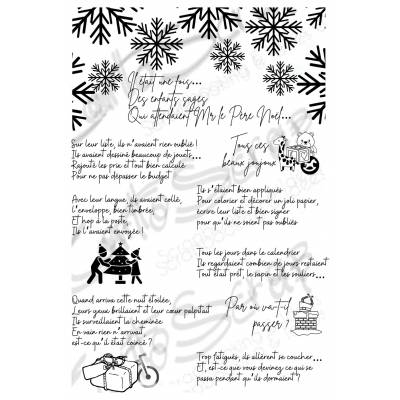 Il était une fois...
Des enfants sages
Qui attendaient Mr le Père Noël...
Sur leur liste, ils n'avaient rien oublié !
Ils avaient dessiné beaucoup de jouets...
Rajouté les prix et tout bien calculé
Pour ne pas dépasser le budget
Tous ces
beaux joujoux
Avec leur langue, ils avaient collé,
L'enveloppe, bien timbrée,
Et hop à la poste,
Ils l'avaient envoyée !
Ils s'étaient bien appliqués
Pour colorier et décorer un joli papier,
écrire leur liste et bien signer
pour qu'ils ne soient pas oubliés
Tous les jours dans le calendrier
Ils regardaient combien de jours restaient
Tout était prêt, le sapin et les souliers...
Quand arriva cette nuit étoilée,
Leurs yeux brillaient et leur cœur palpitait
Ils surveillaient la cheminée
En vain rien n'arrivait
est-ce qu'il était coincé ?
Par où va-t-il
passer ?
Trop fatigués, ils allèrent se coucher...
Et, est-ce que vous devinez ce qui se
passa pendant qu'ils dormaient ?